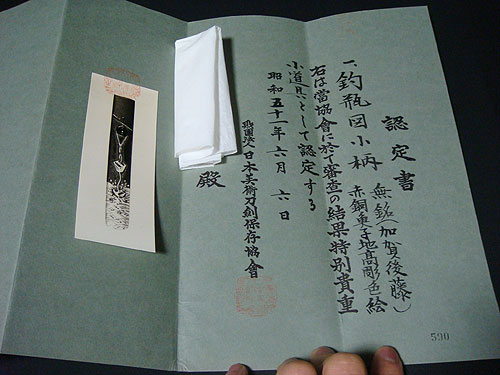 認定書
一、釣瓶図小柄
無銘(加賀後藤)
赤銅魚子地高彫色絵
右は當協會に於て審査の結果特別貴重
小道具として認定する
昭和五十一年六月六日
財団法人日本美術刀剣保存協會
殿
590